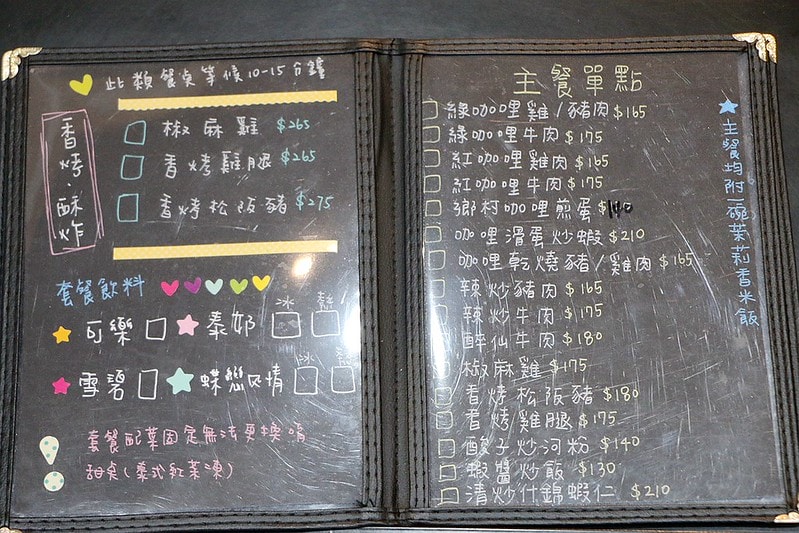 此類餐点等候10-15分鐘
香烤.酥炸
椒麻雞 $265
香烤雞腿 $265
香烤松阪豬 $275
套餐飲料
可樂 泰奶 冰 熱
雪碧 蝶戀风情 冰 熱
套餐配菜固定無法更換唷
甜点(泰式紅茶凍)
主餐單點
綠咖哩雞/豬肉 $165
綠咖哩牛肉 $175
紅咖哩雞肉 $165
紅咖哩牛肉 $175
鄉村咖哩煎蛋 $140
咖哩滑蛋炒蝦 $210
咖哩乾燒豬/雞肉 $165
辣炒豬肉 $165
辣炒牛肉 $175
醉仙牛肉 $180
椒麻雞 $175
香烤松阪豬 $180
香烤雞腿 $175
酸子炒河粉 $140
蝦醬炒飯 $130
清炒什錦蝦仁 $210
主餐均附一碗茉莉香米飯